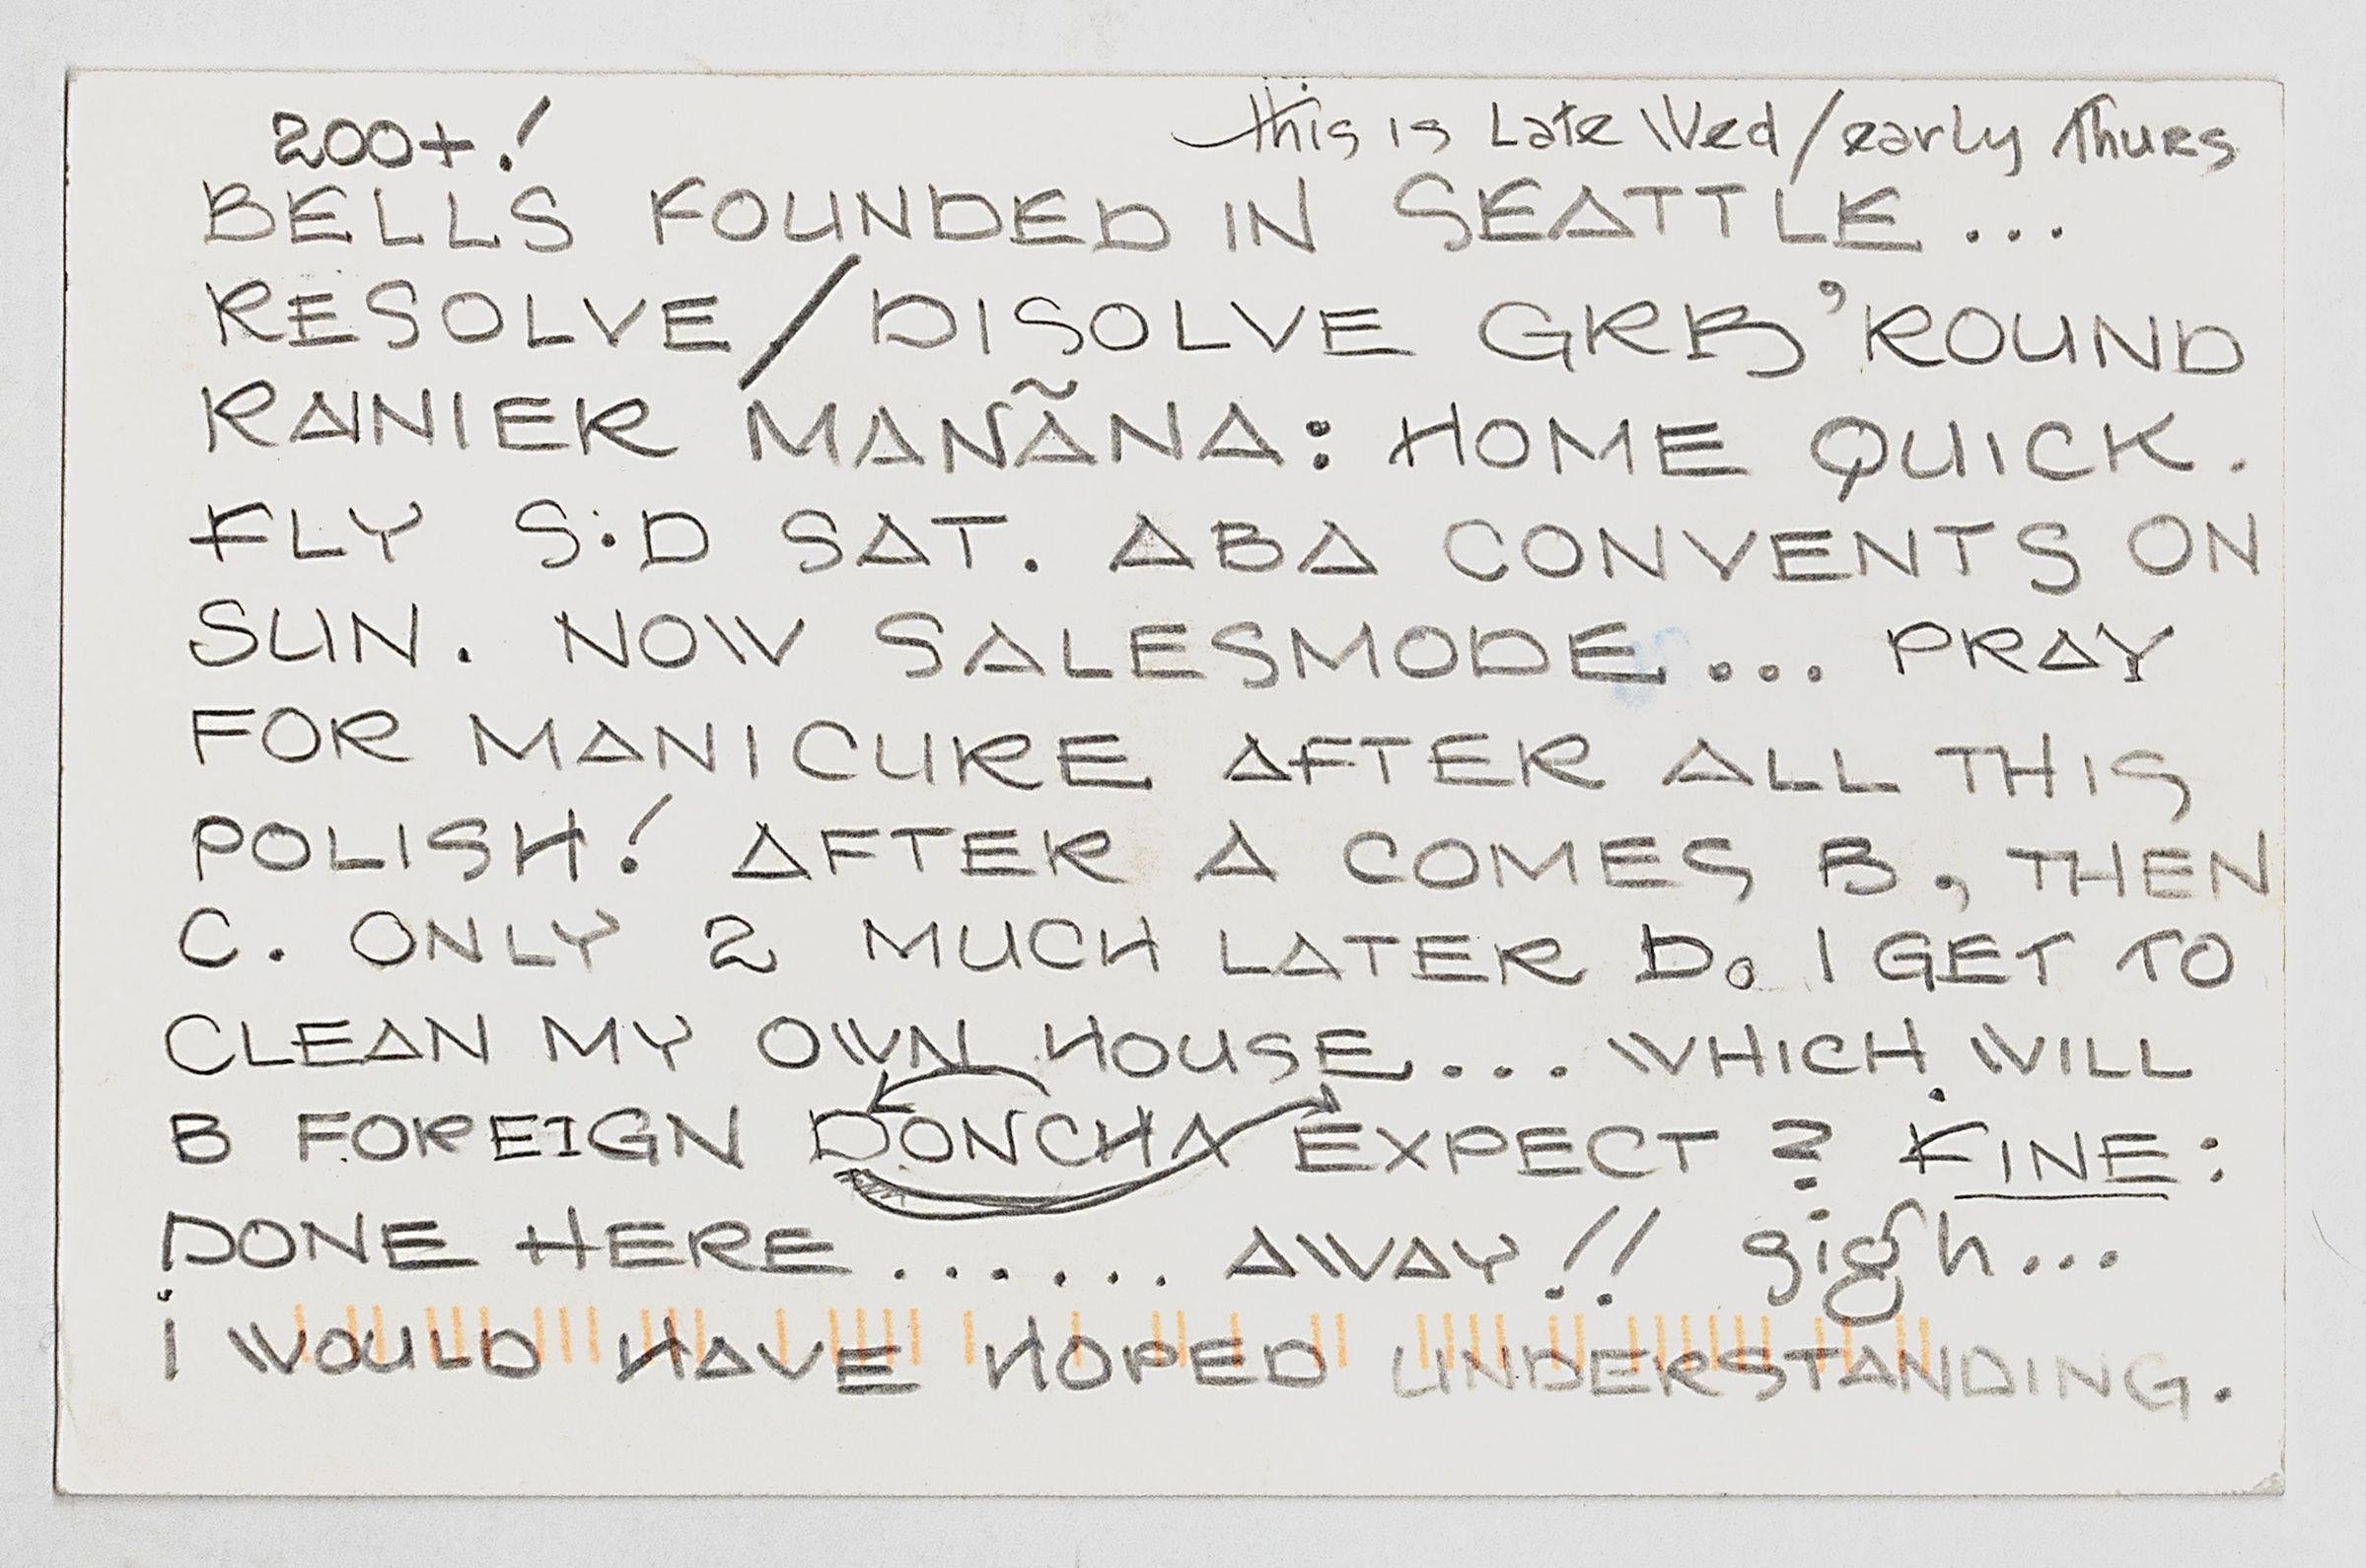 200+! this is Late Wed/early Thurs
BELLS FOUNDED IN SEATTLE...
RESOLVE/DISOLVE GRB 'ROUND
RAINIER MANÃNA: HOME QUICK.
FLY S:D SAT. ABA CONVENTS ON
SUN. NOW SALESMODE... PRAY
FOR MANICURE AFTER ALL THIS
POLISH! AFTER A COMES B, THEN
C. ONLY 2 MUCH LATER D. I GET TO
CLEAN MY OWN HOUSE... WHICH WILL
B FOREIGN DONCHA EXPECT? FINE:
DONE HERE....... AWAY!! sigh...
i WOULD HAVE HOPED UNDERSTANDING.